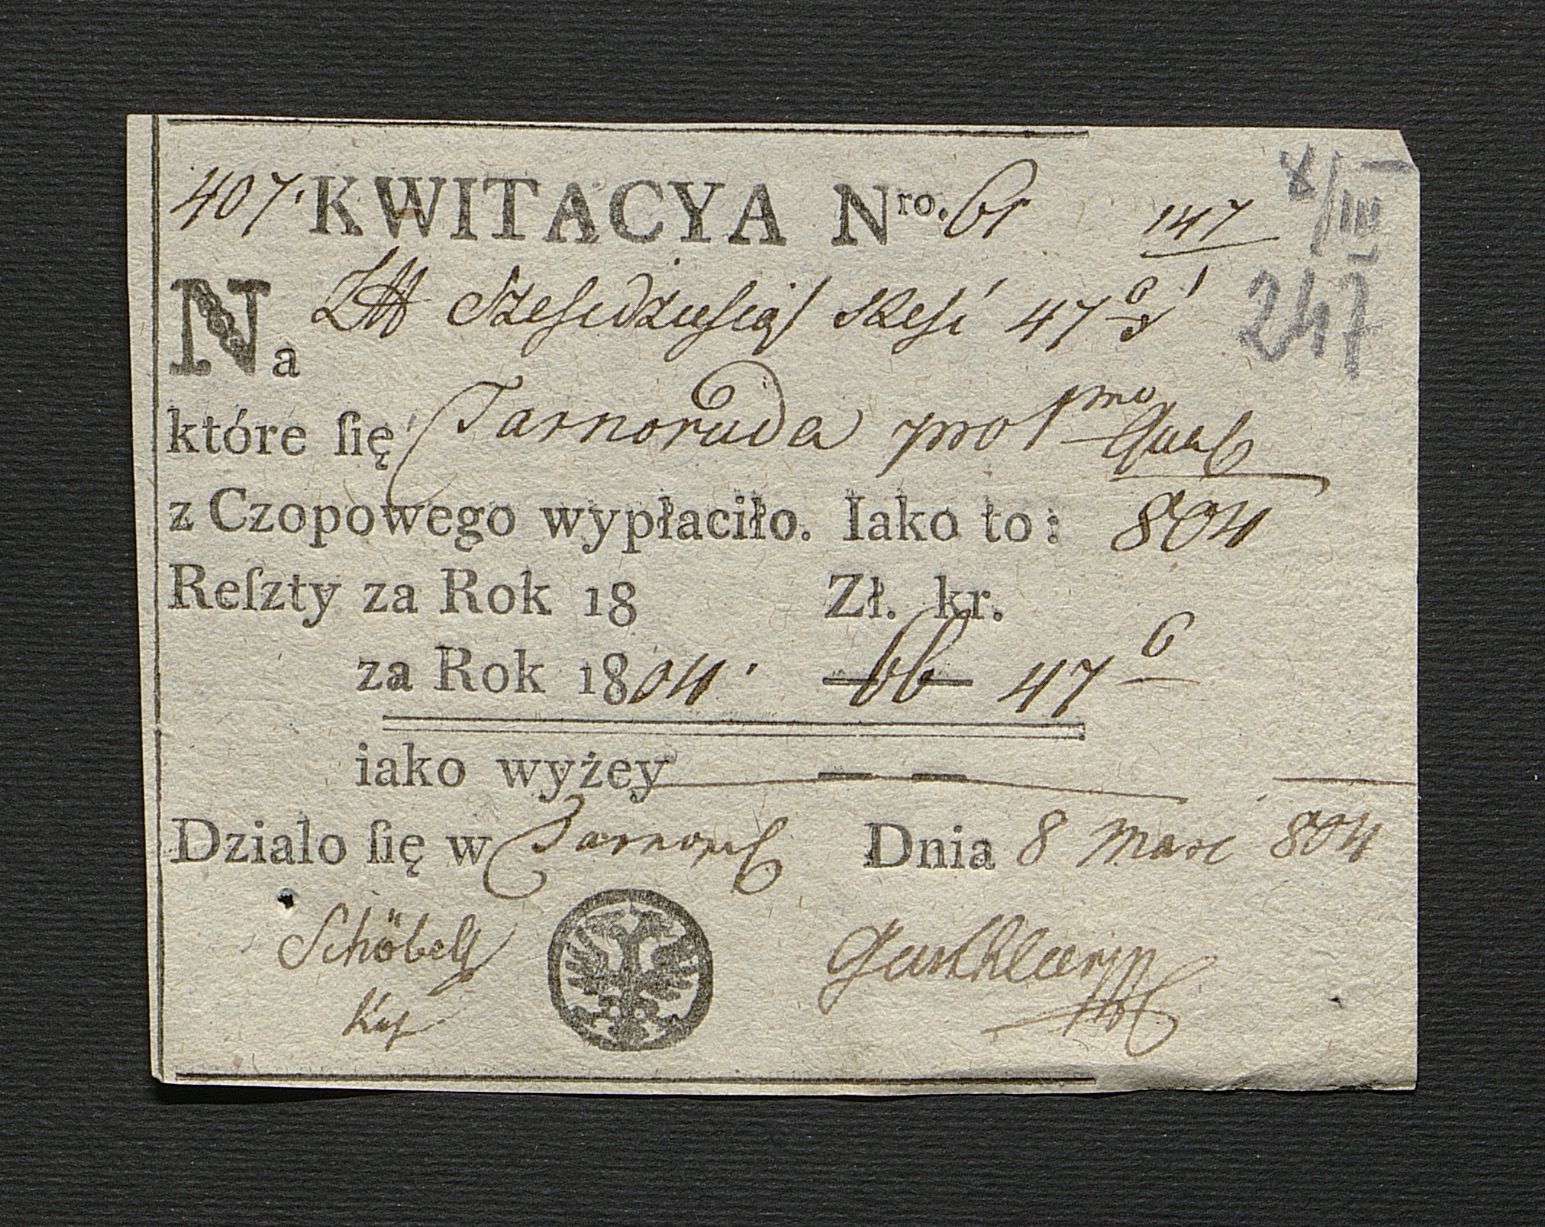 407. KWITACYA Nro. 61 147
X/III
247
Na Szesedziesiąt szesć 47
które ſię Tarnoruda pro 1mo
z Czopowego wypłaciło. Iako to: 804
Reſzty za Rok 18 Zł. kr.
za Rok 1804. 66 47 6
iako wyżey
Działo ſię w Tarnopol Dnia 8 Marc 804
Schöbel